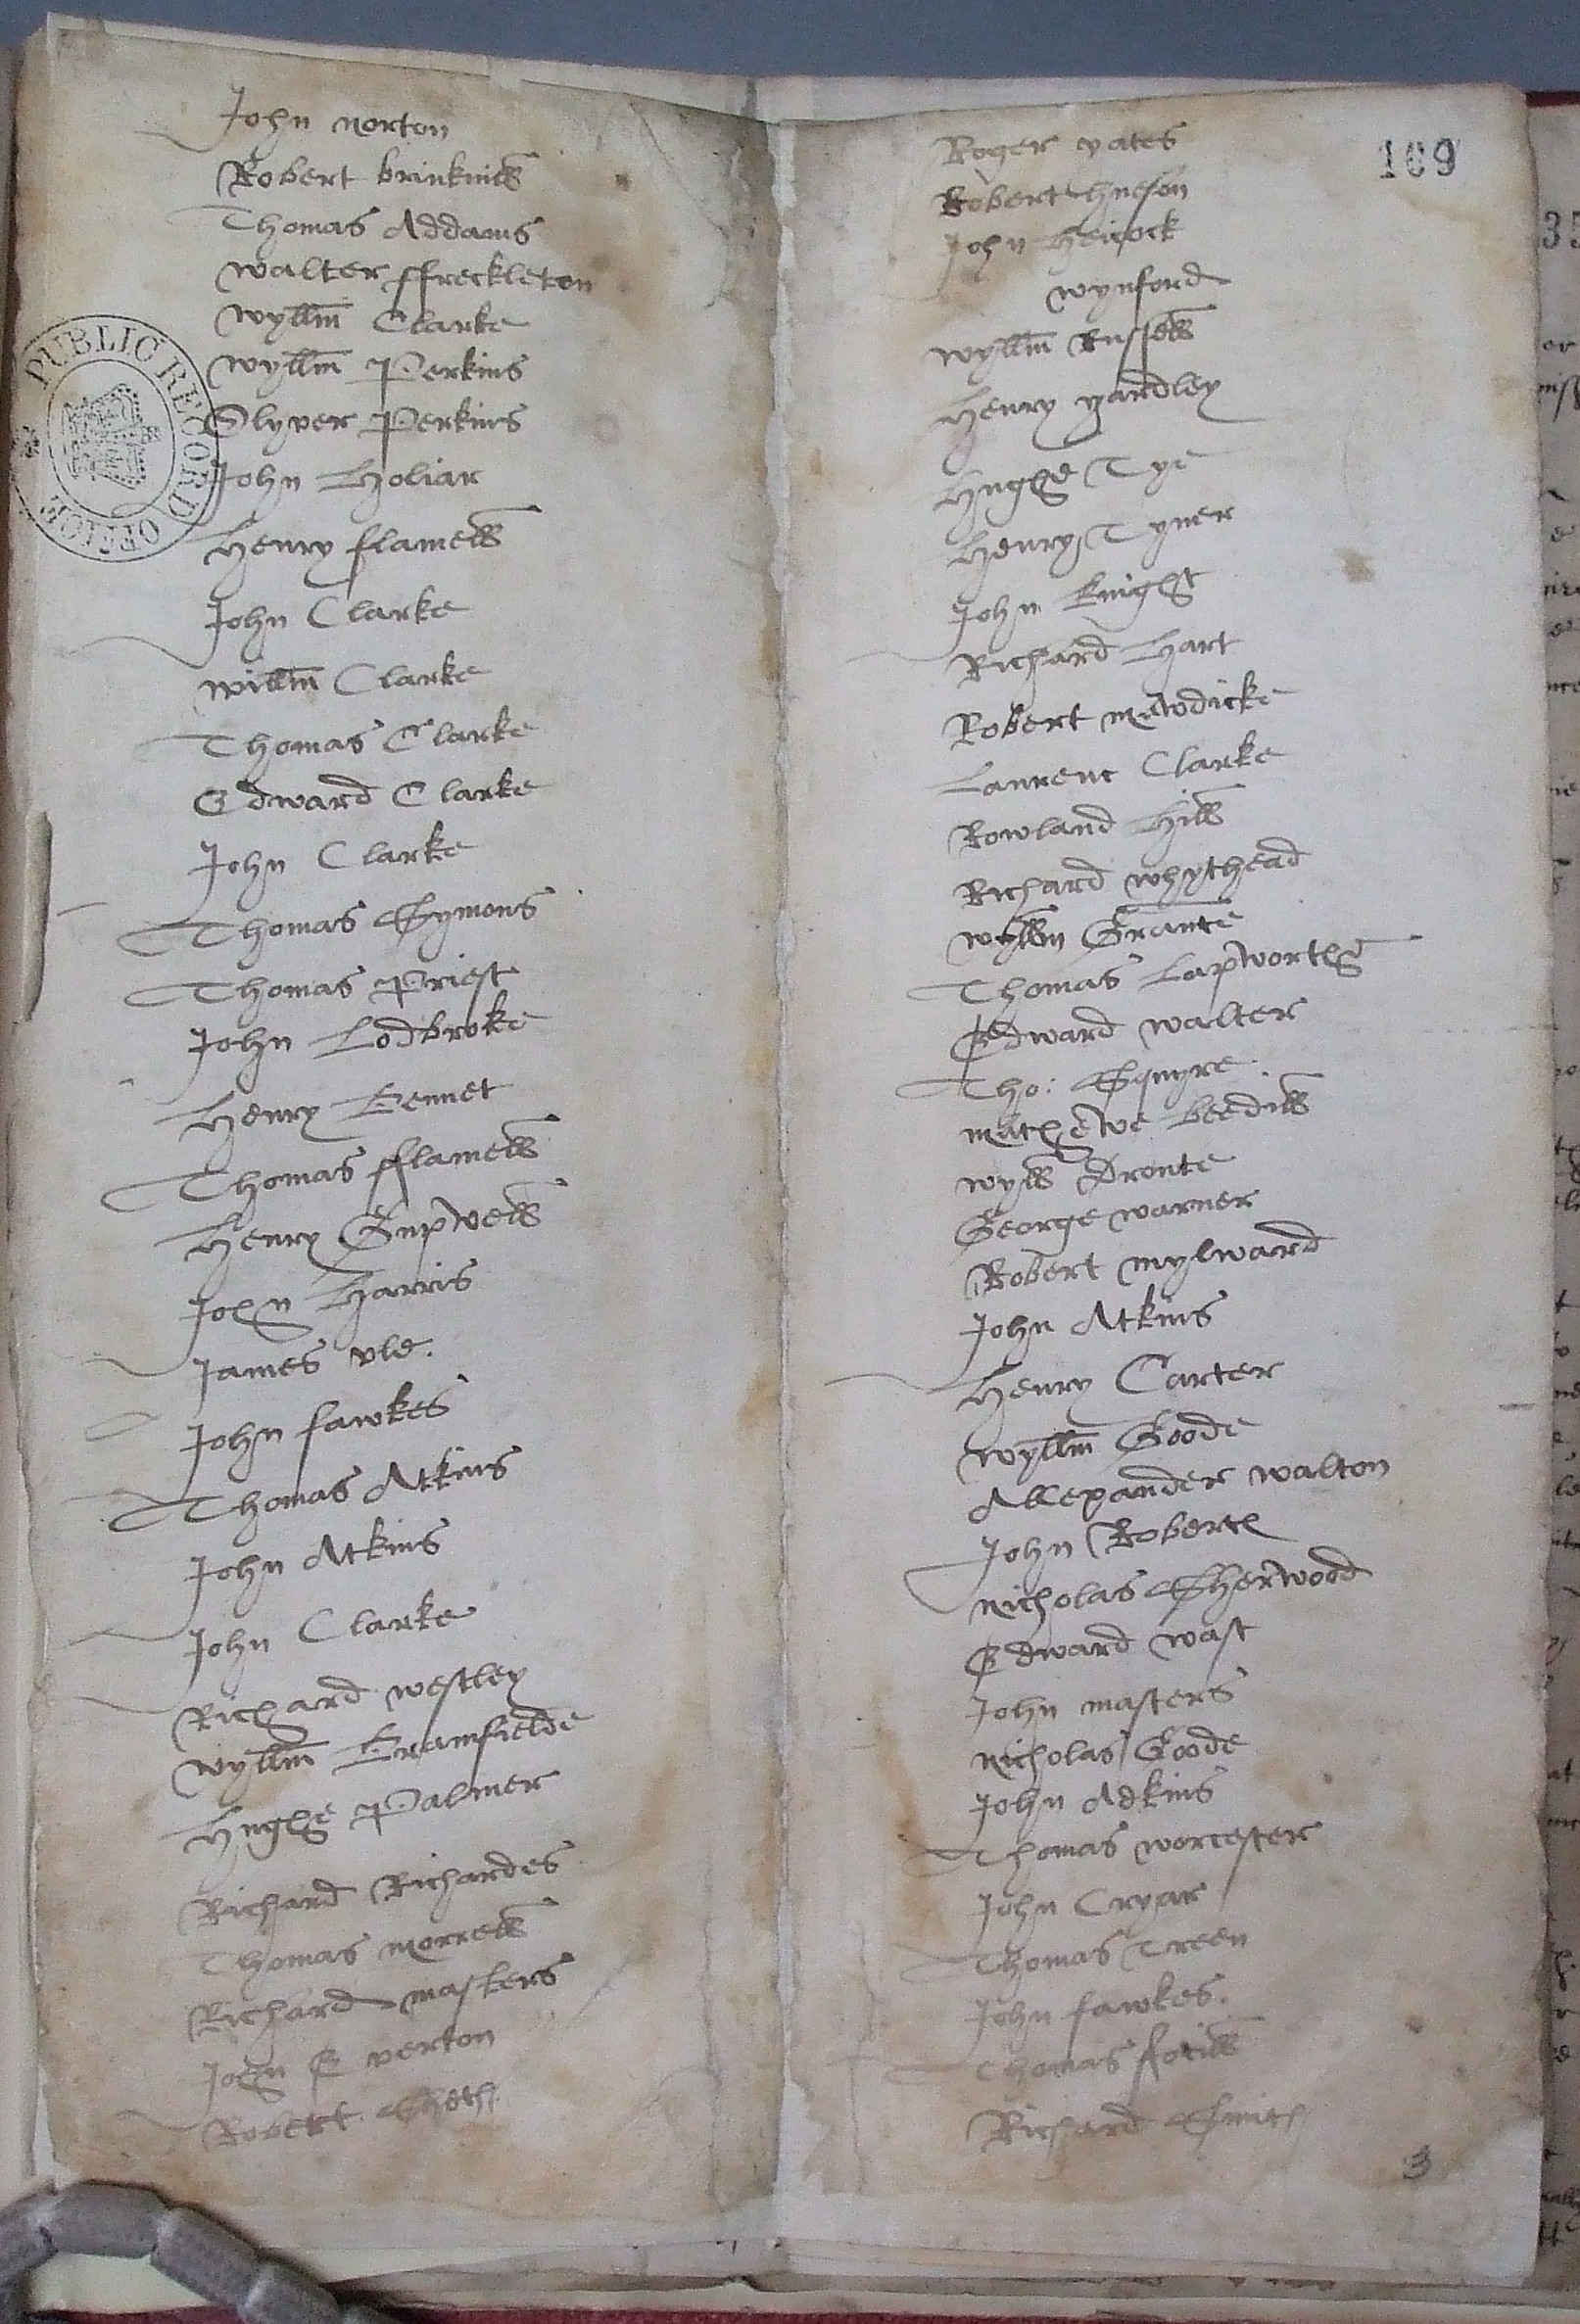 John norton
Robert brinknill
Thomas Addams
walter ffreckleton
wyllm Clarke
wyllm Perkins
Olyver Perkins
John Holiar
Henry flamell
John Clarke
willm Clarke
Thomas Clarke
Edward Clarke
John Clarke
Thomas Symons
Thomas Priest
John Lodbroke
Henry Bennet
Thomas fflamell
Henry Gupwell
John Harris
James vle.
John fawkes
Thomas Atkins
John Atkins
John Clarke
Richard westley
wyllm Bramfielde
Hughe Palmer
Richard Richardes
Thomas morrell
Richard masters
John Everton
Robert
PUBLIC RECORD OFFICE
109
Roger yates
Robert
John Heicock
wynford
wyllm Russell
Henry yardley
Hughe Tye
Henry Tyner
John Knight
Richard Hart
Robert mewdicke
Laurenc Clarke
Rowland Hill
Richard whythead
wyllm Grante
Thomas Lapworthe
Edward walter
Tho: Squyre
mathewe beedill
wyll Dronte
George warner
Robert mylward
John Atkins
Henry Carter
wyllm Goode
Allexander walton
John Robertes
nicholas Sherwood
Edward wast
John masters
nicholas Goode
John Adkins
Thomas worcester
John Cryar
Thomas Treen
John fawkes.
Thomas
Richard Smith
3